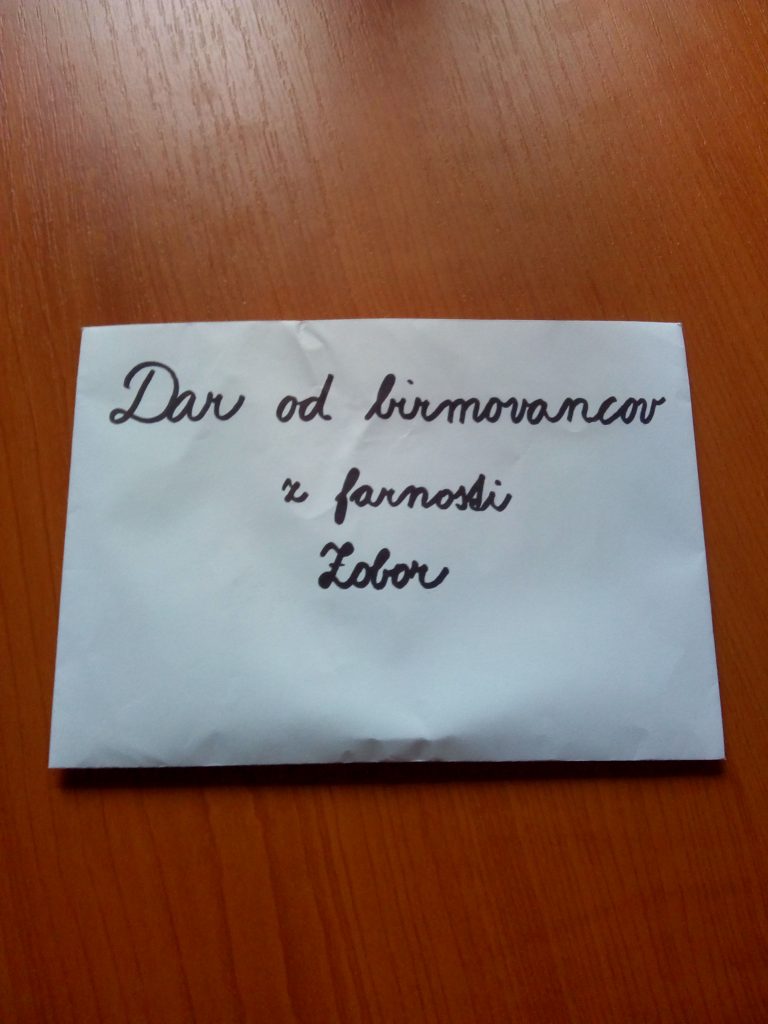 Dar od birmovancov
z farnosti
Zobor